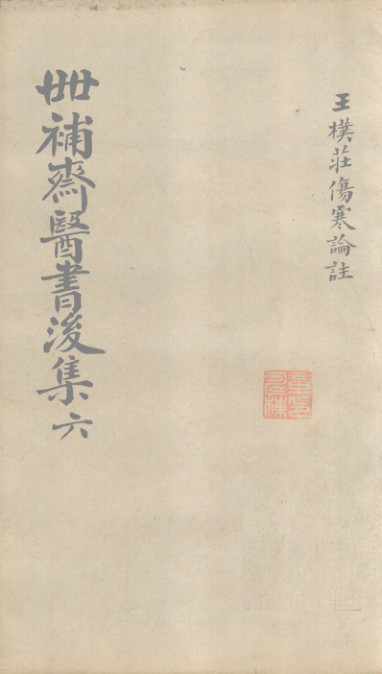 王樸莊傷寒論註
丗補齋醫書後集六